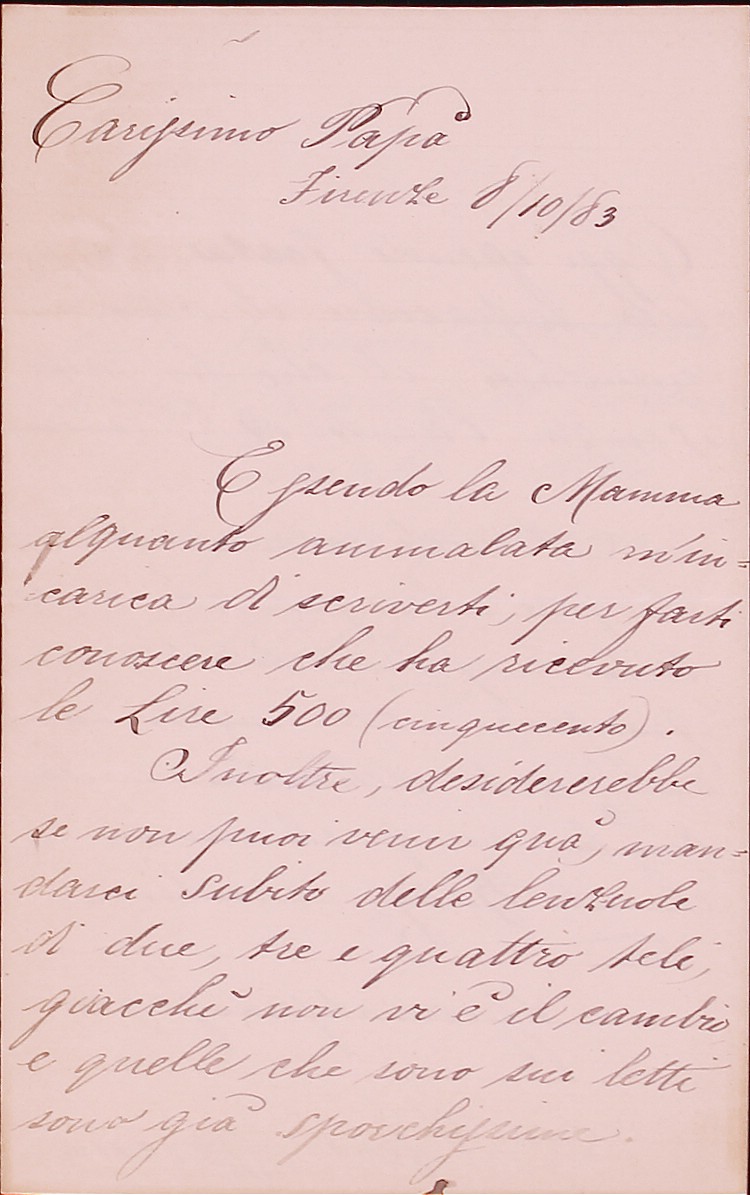 Carissimo Papà
Firenze 8/10/83
Essendo la Mamma
alquanto ammalata m'in=
carica di scriverti, per farti
conoscere che ha ricevuto
le Lire 500 (cinquecento).
Inoltre, desidererebbe
se non puoi venir quà, man=
darci subito delle lenzuole
di due, tre e quattro teli,
giacchè non vi è il cambio
e quelle che sono sui letti
sono già sporchissime.